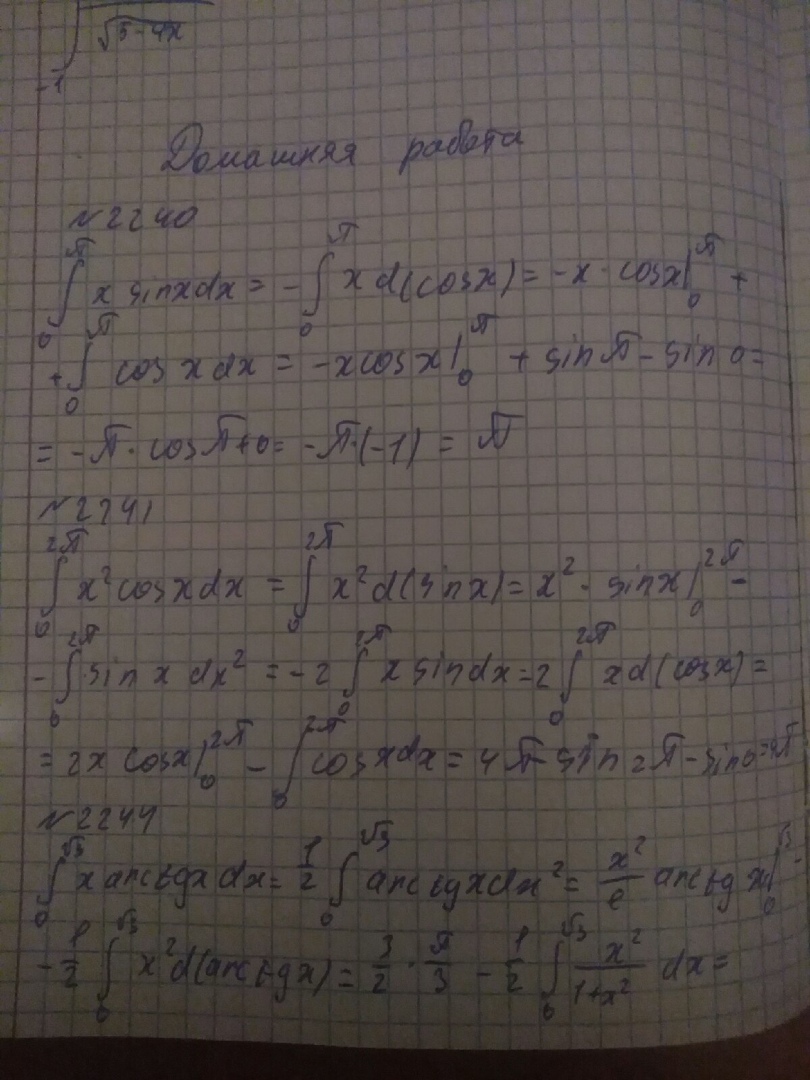 -1 √5-4x
Домашняя работа
№2240
∫₀^π x sinxdx = -∫₀^π x d(cosx) = -x · cosx|₀^π +
+∫₀^π cos x dx = -xcosx|₀^π + sinπ - sin 0 =
= -π · cosπ+0 = -π·(-1) = π
№2241
∫₀^2π x²cosxdx = ∫₀^2π x²d(sinx) = x² · sinx|₀^2π -
-∫₀^2π sin x dx² = -2 ∫₀^2π x sindx = 2 ∫₀^2π xd(cosx) =
= 2x cosx|₀^2π - ∫₀^2π cosxdx = 4π - sin 2π - sin0 = 4π
№2244
∫₀^√3 x arctgx dx = 1/2 ∫₀^√3 arctgxdx² = x²/2 arctg x|₀^√3 -
-1/2 ∫₀^√3 x²d(arctgx) = 3/2 · π/3 - 1/2 ∫₀^√3 x²/(1+x²) dx =